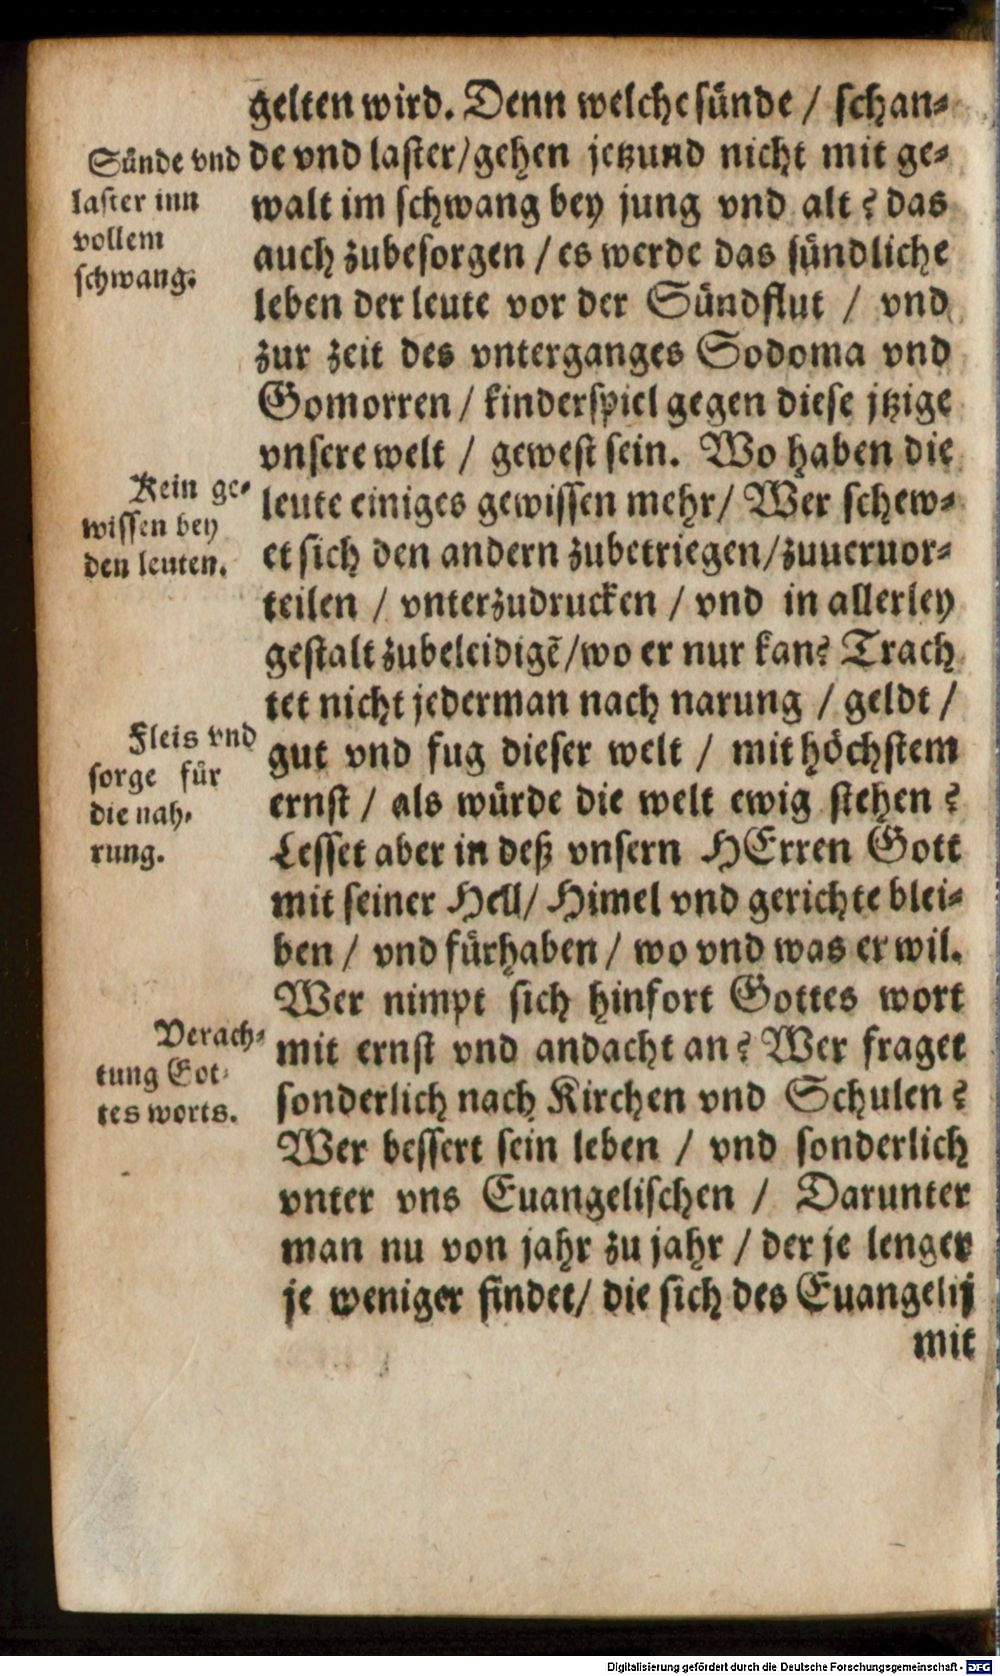 gelten wird. Denn welche sünde / schan-
de vnd laster/gehen jetzund nicht mit ge-
walt im schwang bey jung vnd alt? das
auch zubesorgen / es werde das sündliche
leben der leute vor der Sündflut / vnd
zur zeit des vnterganges Sodoma vnd
Gomorren / kinderspiel gegen diese jtzige
vnsere welt / gewest sein. Wo haben die
leute einiges gewissen mehr/ Wer schew-
et sich den andern zubetriegen/zuueruor-
teilen / vnterzudrucken / vnd in allerley
gestalt zubeleidigẽ/wo er nur kan? Trach
tet nicht jederman nach narung / geldt /
gut vnd fug dieser welt / mit höchstem
ernst / als würde die welt ewig stehen?
Lesset aber in deß vnsern HErren Gott
mit seiner Hell/ Himel vnd gerichte blei-
ben / vnd fürhaben / wo vnd was er wil.
Wer nimpt sich hinfort Gottes wort
mit ernst vnd andacht an? Wer fraget
sonderlich nach Kirchen vnd Schulen?
Wer bessert sein leben / vnd sonderlich
vnter vns Euangelischen / Darunter
man nu von jahr zu jahr / der je lenger
je weniger findet/ die sich des Euangelij
mit
Sünde vnd
laster inn
vollem
schwang.
Kein ge-
wissen bey
den leuten.
Fleis vnd
sorge für
die nah-
rung.
Verach-
tung Got-
tes worts.
Digitalisierung gefördert durch die Deutsche Forschungsgemeinschaft - DFG